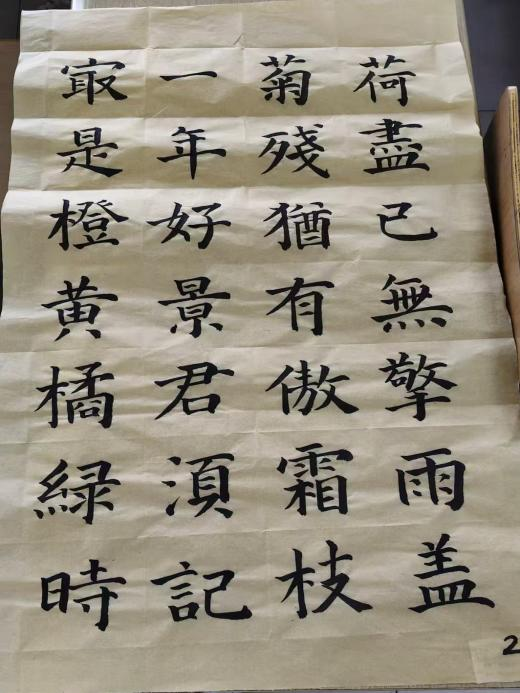 荷盡已無擎雨盖
菊殘猶有傲霜枝
一年好景君湏記
㝡是橙黄橘緑時
2